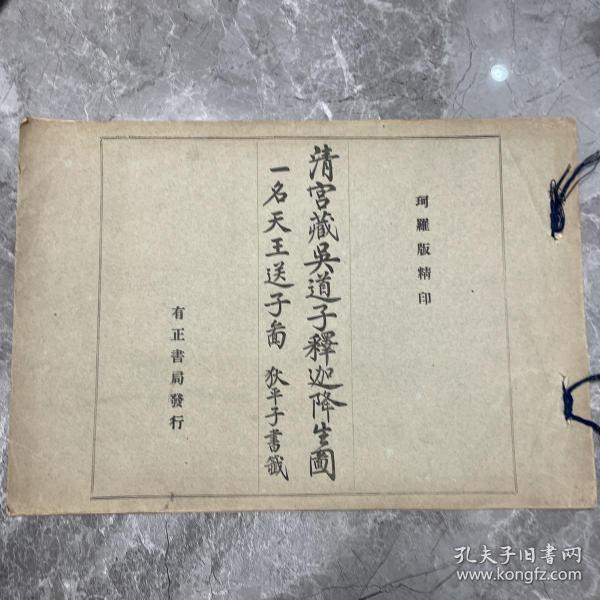 珂羅版精印
清宮藏吳道子釋迦降生圖
一名天王送子啚 狄平子書籤
有正書局發行
孔夫子旧書网
www.kongfz.com